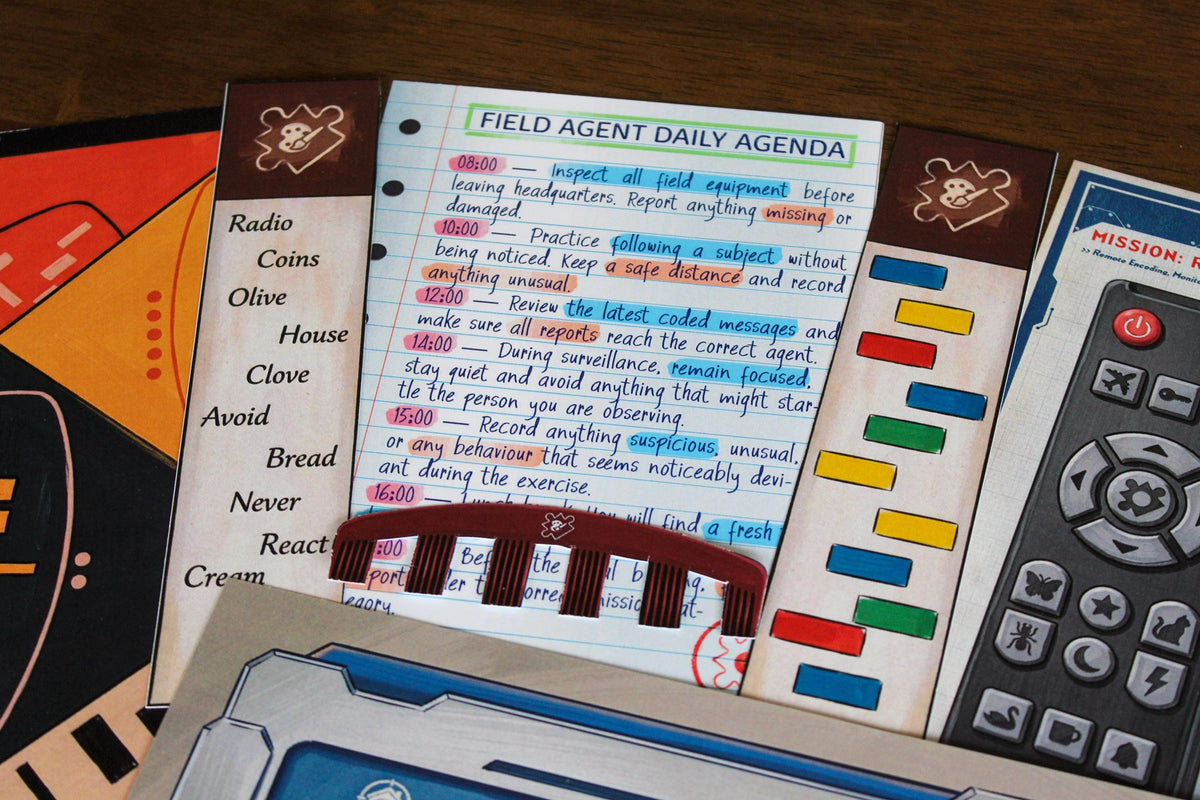 Radio
Coins
Olive
House
Clove
Avoid
Bread
Never
React
Cream
FIELD AGENT DAILY AGENDA
08:00 — Inspect all field equipment before
leaving headquarters. Report anything missing or
damaged.
10:00 — Practice following a subject without
being noticed. Keep a safe distance and record
anything unusual.
12:00 — Review the latest coded messages and
make sure all reports reach the correct agent.
14:00 — During surveillance, remain focused,
stay quiet and avoid anything that might star-
tle the person you are observing.
15:00 — Record anything suspicious, unusual,
or any behaviour that seems noticeably devi-
ant during the exercise.
16:00 — will find a fresh
:00 the
MISSION: R
>> Remote Encoding, Monit